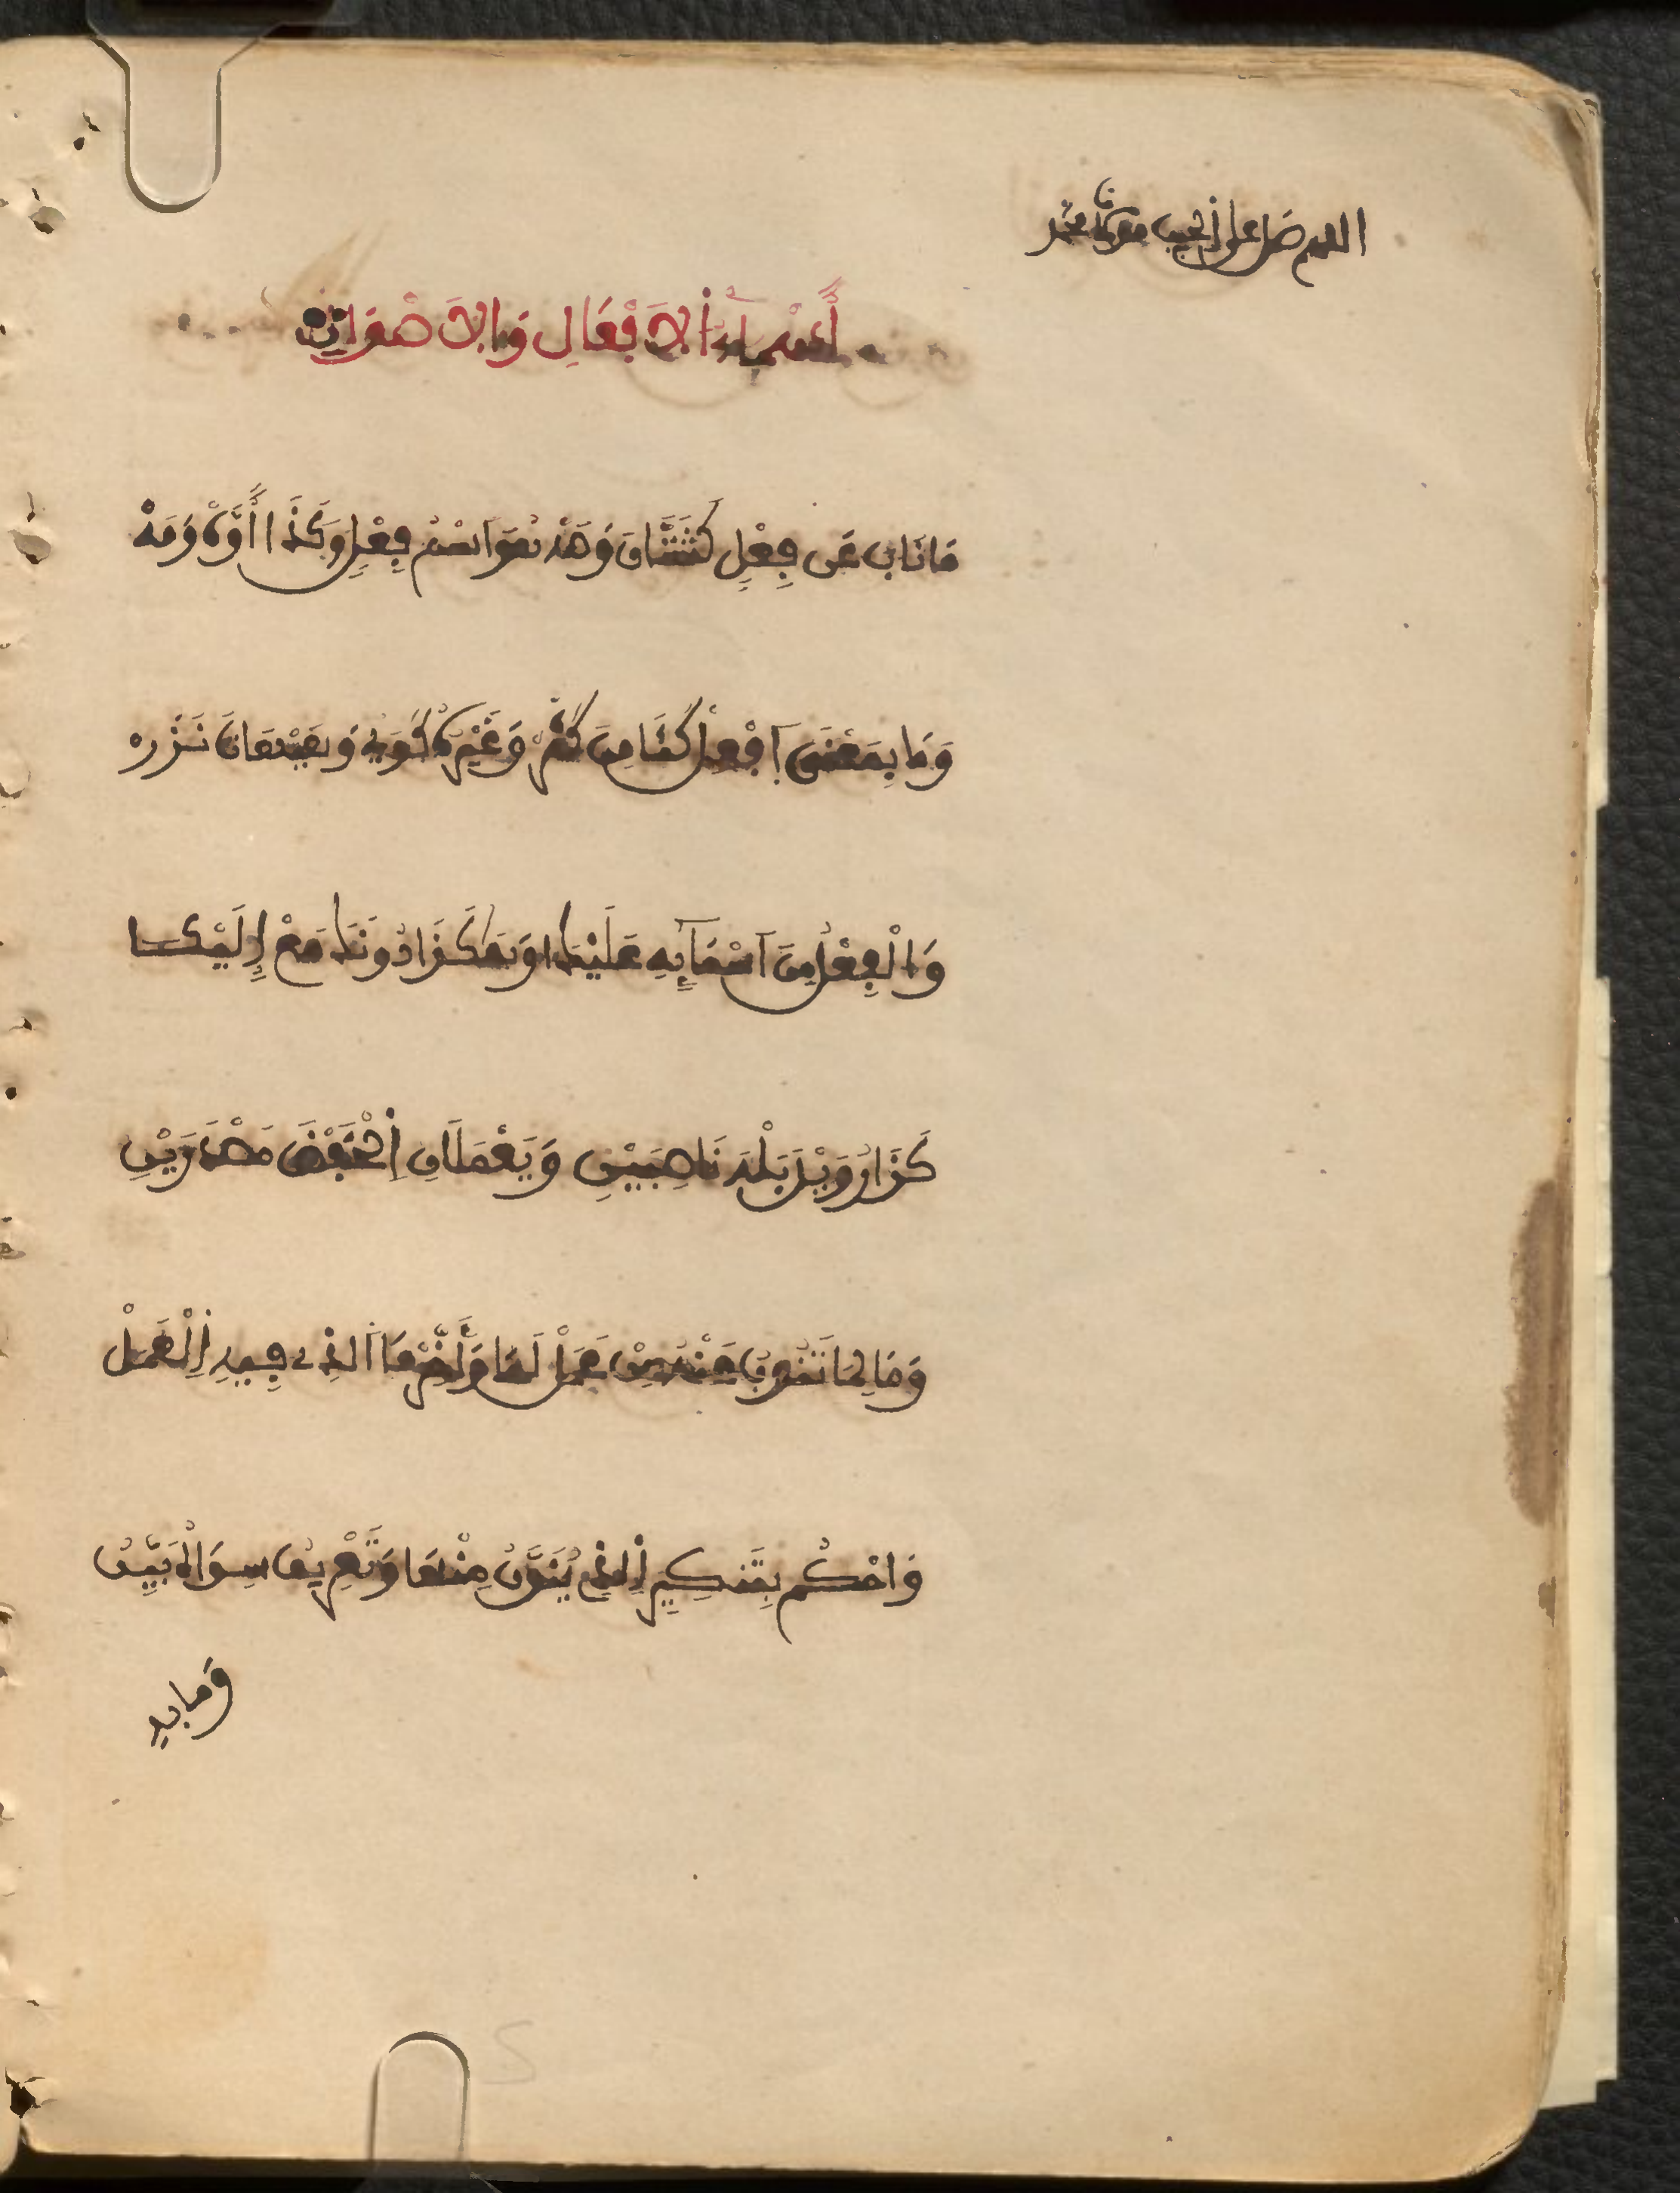 اللهم صل على الحبيب مولانا محمد
أَسْمَاءُ الَافْعَالِ وَالَاصْوَاتِ
مَا نَابَ عَن فِعْلٍ كَشَتَّانَ وَصَهْ هُوَ اسْمُ فِعْلٍ وَكَذَا أَوَّهْ وَمَهْ
وَمَا بِمَعْنَى افْعَلْ كَئَامِينَ كَثُرْ وَغَيْرُهُ كَوَيْ وَهَيْهَاتَ نَزُرْ
وَالْفِعْلُ مِنَ اسْمَآئِهِ عَلَيْكَا وَهَكَذَا دُونَكَ مَعْ إِلَيْكَا
كَذَا رُوَيْدَ بَلْهَ نَاصِبَيْنِ وَيَعْمَلَانِ الْخَفْضَ مَصْدَرَيْنِ
وَمَا لِمَا تَنُوبُ عَنْهُ مِنْ عَمَلْ لَهَا وَأَخِّرْ مَا الذِي فِيهِ الْعَمَلْ
وَاحْكُم بِتَنكِيرِ الذِي يُنَوَّنُ مِنْهَا وَتَعْرِيفُ سِوَاهُ بَيِّنُ
وَمَا بِهِ